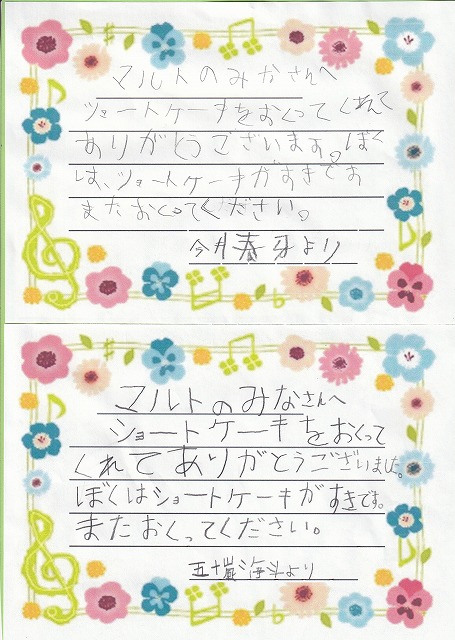 マルトのみかさんへ
ショートケーキをおくってくれて
ありがとうございます。ぼく
は、ショートケーキがすきです
またおくってください。
今井春牙より
マルトのみなさんへ
ショートケーキをおくって
くれてありがとうございました。
ぼくはショートケーキがすきです。
またおくってください。
五十嵐海斗より